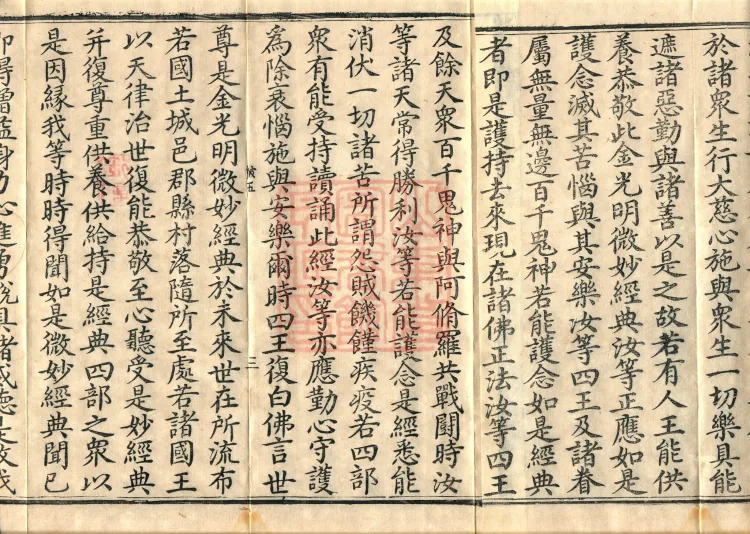 於諸衆生行大慈心施與衆生一切樂具能
遮諸惡勤與諸善以是之故若有人王能供
養恭敬此金光明微妙經典汝等正應如是
護念滅其苦惱與其安樂汝等四王及諸眷
屬無量無邊百千鬼神若能護念如是經典
者即是護持去來現在諸佛正法汝等四王
及餘天衆百千鬼神與阿脩羅共戰鬪時汝
等諸天常得勝利汝等若能護念是經悉能
消伏一切諸苦所謂怨賊饑饉疾疫若四部
衆有能受持讀誦此經汝等亦應勤心守護
為除衰惱施與安樂爾時四王復白佛言世
三
尊是金光明微妙經典於未來世在所流布
若國土城邑郡縣村落隨所至處若諸國王
以天律治世復能恭敬至心聽受是妙經典
并復尊重供養供給持是經典四部之衆以
是因緣我等時時得聞如是微妙經典聞已
即得增益身力心進勇銳具諸威德是故我